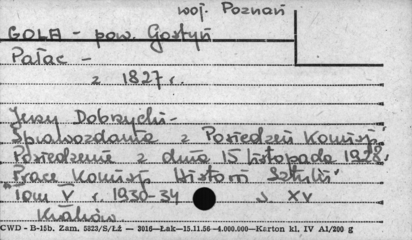 woj. Poznań
GOLA - pow. Gostyń
Pałac -
z 1827 r.
Jerzy Dobrzycki -
Sprawozdania z Posiedzeń Komisji,
Posiedzenie z dnia 15 listopada 1928,
"Prace Komisji Historii Sztuki"
Tom V r. 1930-34 s. XV
Kraków
CWD - B-15b. Zam. 5823/S/Łż — 3016—Łak—15.11.56—4.000.000—Karton kl. IV A1/200 g